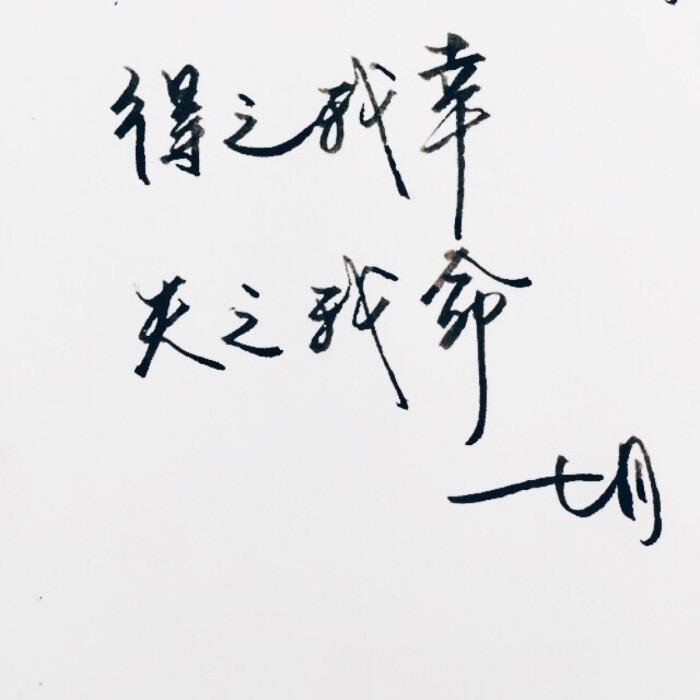 得之我幸
失之我命
一七月